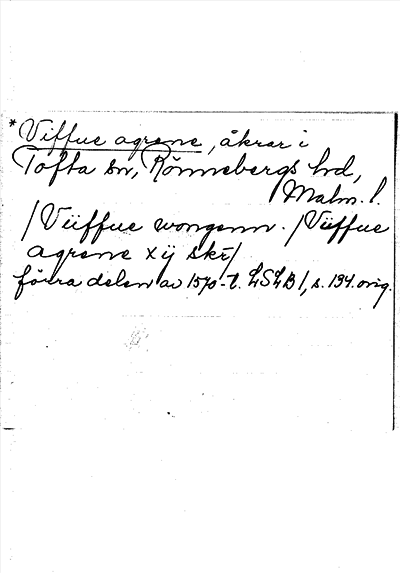 *Viffue agrene, åkrar i
Tofta sn, Rönnebergs hd,
Malm. l.
/Viiffue wongenn. /Viiffue
agrene x ij skr/
förra delen av 1570-t. LSLB 1, s. 134. orig.